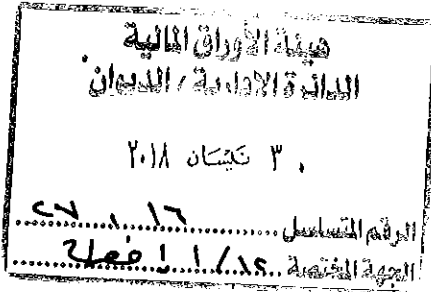 هيئة الأوراق المالية
الدائرة الادارية / الديوان
٣٠ نيسان ٢٠١٨
الرقم المتسلسل
الجهة المختصة